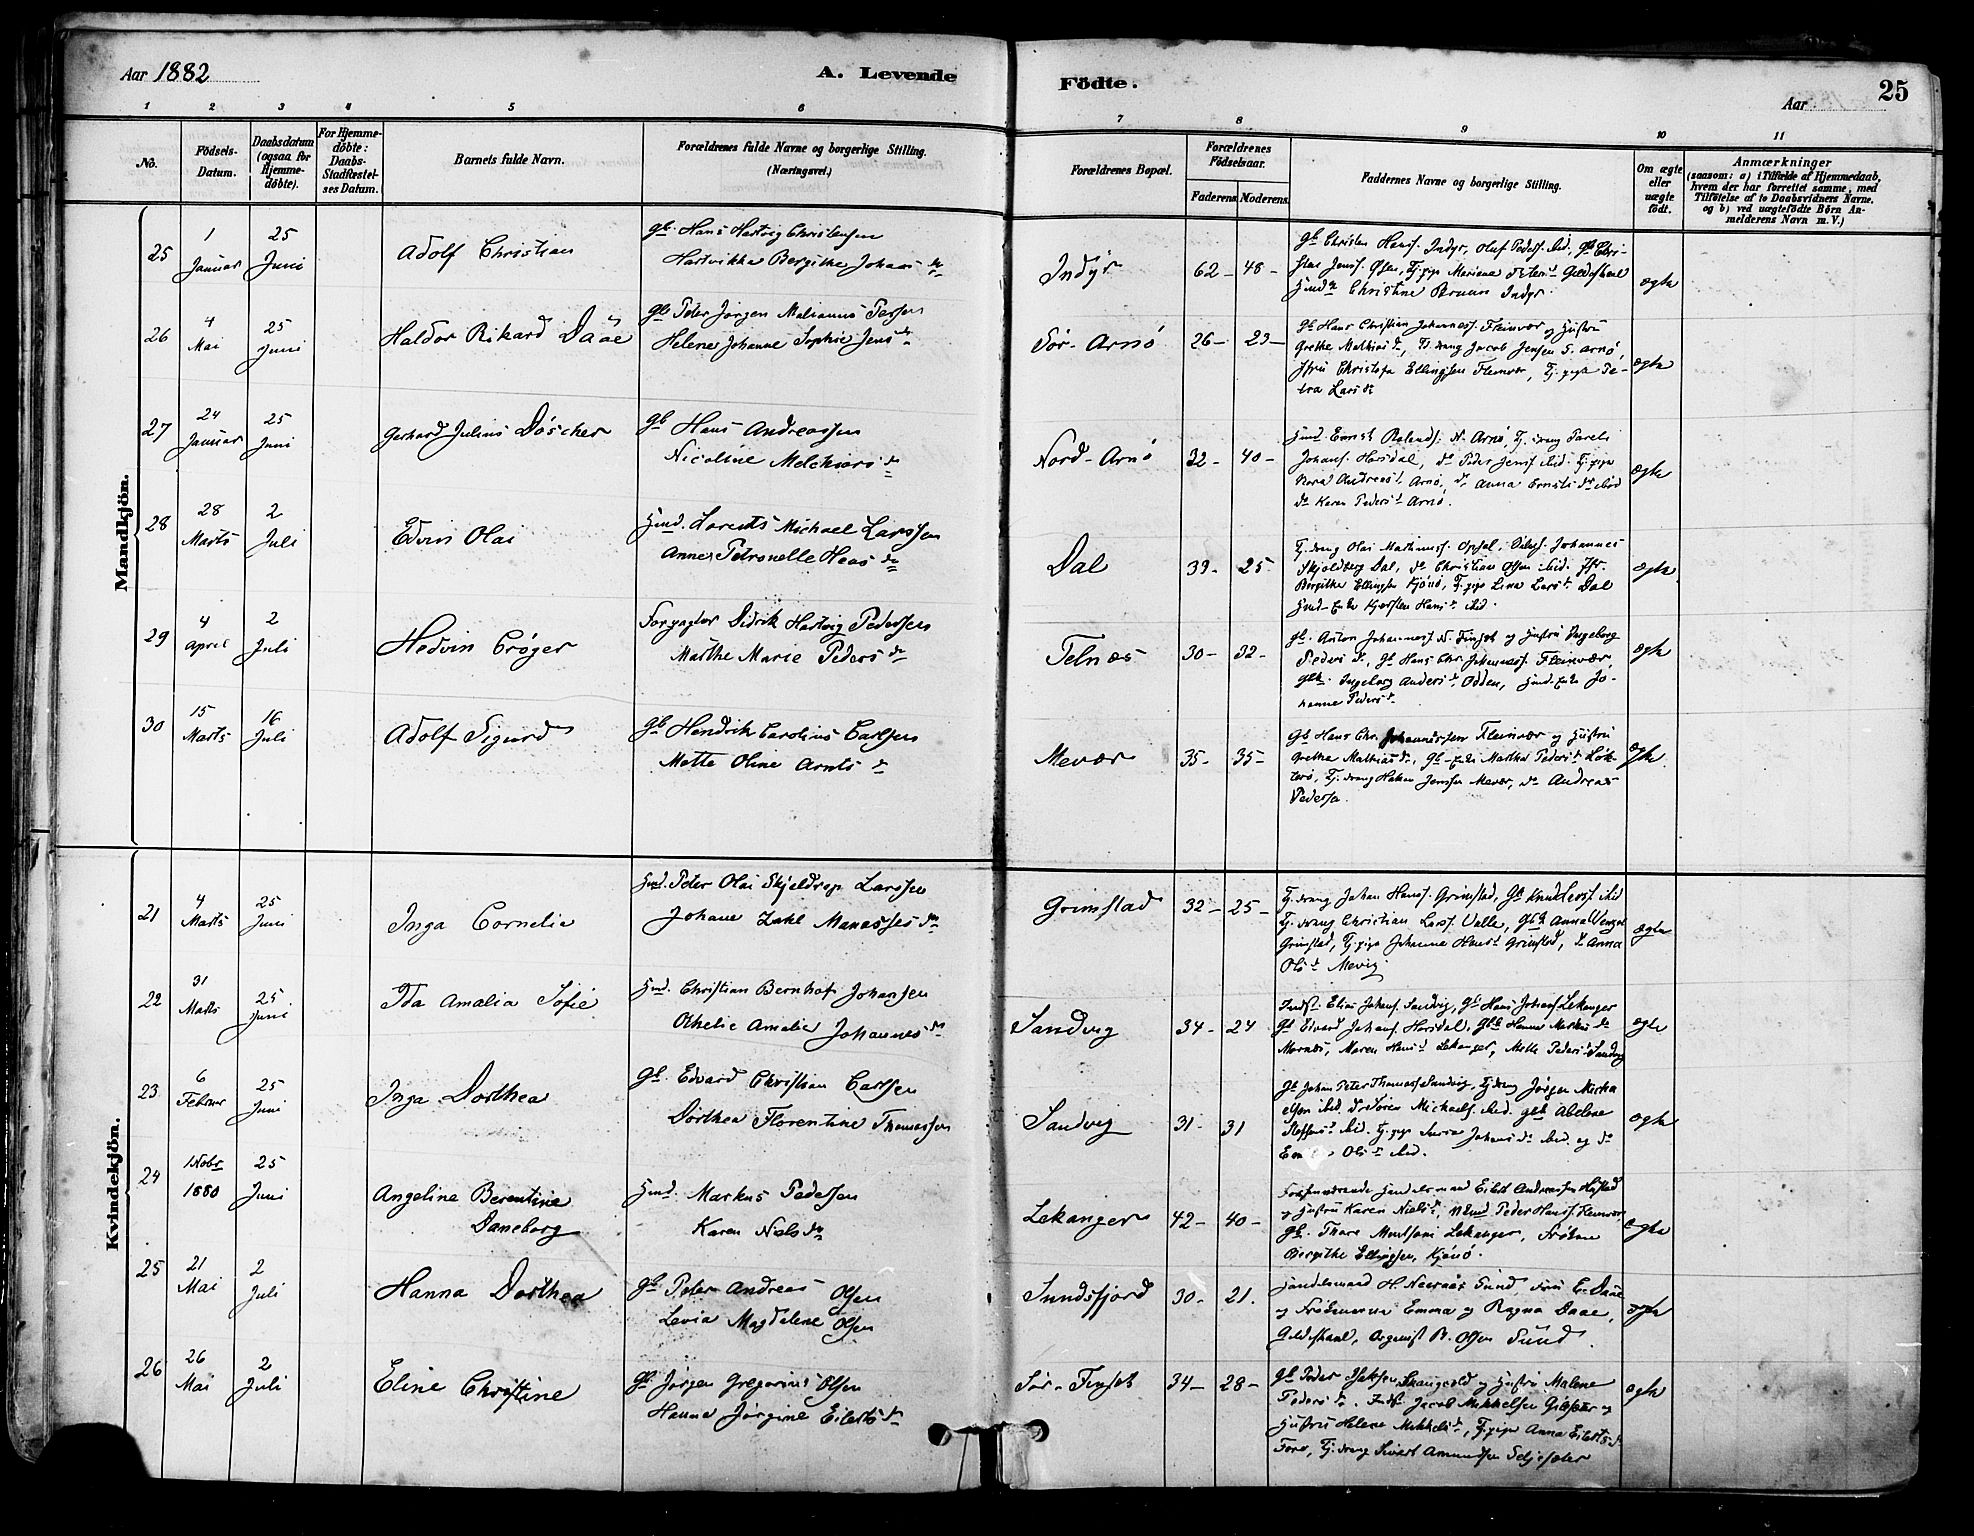 Aar 1882
A. Levende
Födte.
Aar
25
1 2 3 4 5 6
7 8 9 10 11
No.
Födsels-
Datum.
Daabsdatum
(ogsaa for
Hjemme-
döbte).
For Hjemme-
döbte:
Daabs-
Stadfæstel-
ses Datum.
Barnets fulde Navn.
Forældrenes fulde Navne og borgerlige Stilling.
(Næringsvei.)
Forældrenes Bopæl.
Forældrenes
Födselsaar.
Faderens Moderens.
Faddernes Navne og borgerlige Stilling.
Om ægte
eller
uægte
födt.
Anmærkninger
(saasom: a) i Tilfælde af Hjemmedaab,
hvem der har forrettet samme, med
Tilföielse af to Daabsvidners Navne,
og b) ved uægtefödte Börn An-
melderens Navn m. V.)
Mandkjön.
25
1
Januar
25
Juni
Adolf Christian
Gb Hans Hartvig Christensen
Hartvikka Bergithe Johans dr
Indyr
62 - 48 -
Gb Christen Hanss. Indyr, Oluf Peders. ibid. Gb Chri-
Christine Bruun Indyr.
ægte
26
4
Mai
25
Juni
Haldor Rikard Daae
Gb Peter Jørgen Marianus Petersen
Helene Johanne Sophie Jens dr
Sör-Arnö
26 - 23 -
Gb Hans Christian Johanness. Fleinvær og Hustru
Grethe Mathias dr, Tj. dreng Jacob Jensen S. Arnö,
Jfru Christofa Ellingsen Fleinvær, Tj. pige Pe-
tra Lars dr
ægte
27
24
Januar
25
Juni
Gerhard Julius Döscher
Gb Hans Andreassen
Nicoline Melchiors dr
Nord-Arnö
32 - 40 -
Johans. Horsdal, do Peder Jenss. ibid. Tj. pige
Nora Andreas d. Arnö, do Anna Ernsts dr ibid
do Karen Peders d. Arnö.
ægte
28
28
Marts
2
Juli
Edvin Olai
Hmd. Lorents Michael Larssen
Anne Petronelle Heas dr
Dal
39 - 25 -
Tj. dreng Olai Martinuss. Opsal, Johannes
Skjoldberg Dal, do Christian Olsen ibid. Jfr.
Bergithe Ellingsen Kjönö, Tj. pige Lina Lars d. Dal
Hmd-Enke Kjersten Hans d. ibid.
ægte
29
4
April
2
Juli
Hedvin Cröger
Forpagter Didrik Hartvig Pedersen
Marthe Marie Peders dr
Telnæs
30 - 32 -
Gb. Anton Johanness. N. Finset og Hustru Ingeborg
Peders d., Gb Hans Chr. Johanness. Fleinvær,
Gbk. Ingeborg Anders d. Odden, Hmd. Enke Jo-
hanne Peders d.
ægte
30
15
Marts
16
Juli
Adolf Sigurd
Gb Hendrik Carolius Carlsen
Mette Oline Arnts dr
Mevær
35 - 35 -
Gb Hans Chr. Johannessen Fleinvær og Hustru
Grethe Mathias dr, Gb-Enke Martha Peders d.
Tj. dreng Haken Jenssen Mevær, do Andreas
Pedersen.
ægte
Kvindekjön.
21
4
Marts
25
Juni
Inga Cornelia
Hmd. Peter Olai Skjeldrop Larssen
Johane Zahl Manasses dr
Grimstad
32 - 25 -
Tj. dreng Johan Hanss. Grimstad, Gb Knud Larss. ibid
Tj. dreng Christian Larss. Valle, Gbk Anna
Grimstad, Tj. pige Johanna Hans d. Grimstad, do Anna
Ols d. Mevig
ægte
22
31
Marts
25
Juni
Ida Amalia Sofie
Hmd. Christian Bernhof Johansen
Othelie Amalie Johannes dr
Sandvig
34 - 24
Indst. Elias Johans. Sandvig, Gb Hans Johans. Lekanger
Gb Eivard Johans. Horsdal, Gbk Hanna Markus dr
Mornæs, Maren Hans d. Lekanger, Mette Peders d. Sandvig
ægte
23
6
Februar
25
Juni
Inga Dorthea
Gb. Edvard Christian Carlsen
Dorthea Florentine Thomassen
Sandvig
31 - 31
Gb Johan Peter Thomass. Sandvig, Tj. dreng Jörgen Micha
elsen ibid. do Sören Michaels. ibid. Gbk Abelone
Steffens d. ibid. Tj. pige Johans dr ibid. og do
Ols d. ibid.
ægte
24
Nobr
1880
25
Juni
Angeline Berentine
Daneborg
Hmd. Markus Pedersen
Karen Niels dr
Lekanger
42 - 40 -
Forhenværende Handelsmand Eilert Andreassen Hustad
og Hustru Karen Niels d., Peder Hanss. Fleinvær,
Gb. Thore Lekanger, Fröken
Bergithe Ellingsen, Kjönö.
ægte
25
21
Mai
2
Juli
Hanna Dorthea
Gb Peter Andreas Olsen
Levia Magdalene Olsen
Sundsfjord
30 - 21.
Handelsmand H. Sund, Fru E. Daae
og Frökenerne Emma og Ragna Daae,
Gildeskaal, Organist B. Olsen Sund.
ægte
26
26
Mai
2
Juli
Eline Christine
Gb. Jörgen Gregorius Olsen
Hanna Jörgine Eilerts dr
Sör-Finset
34 - 28 -
Gb Peder og Hustru Malene
Peders dr. Indst. Jacob Mikkelsen og
Hustru Helene Mikkels d., Tj. pige Anna Eilerts d.
Forö, Tj. dreng Sivert Amundsen
ægte